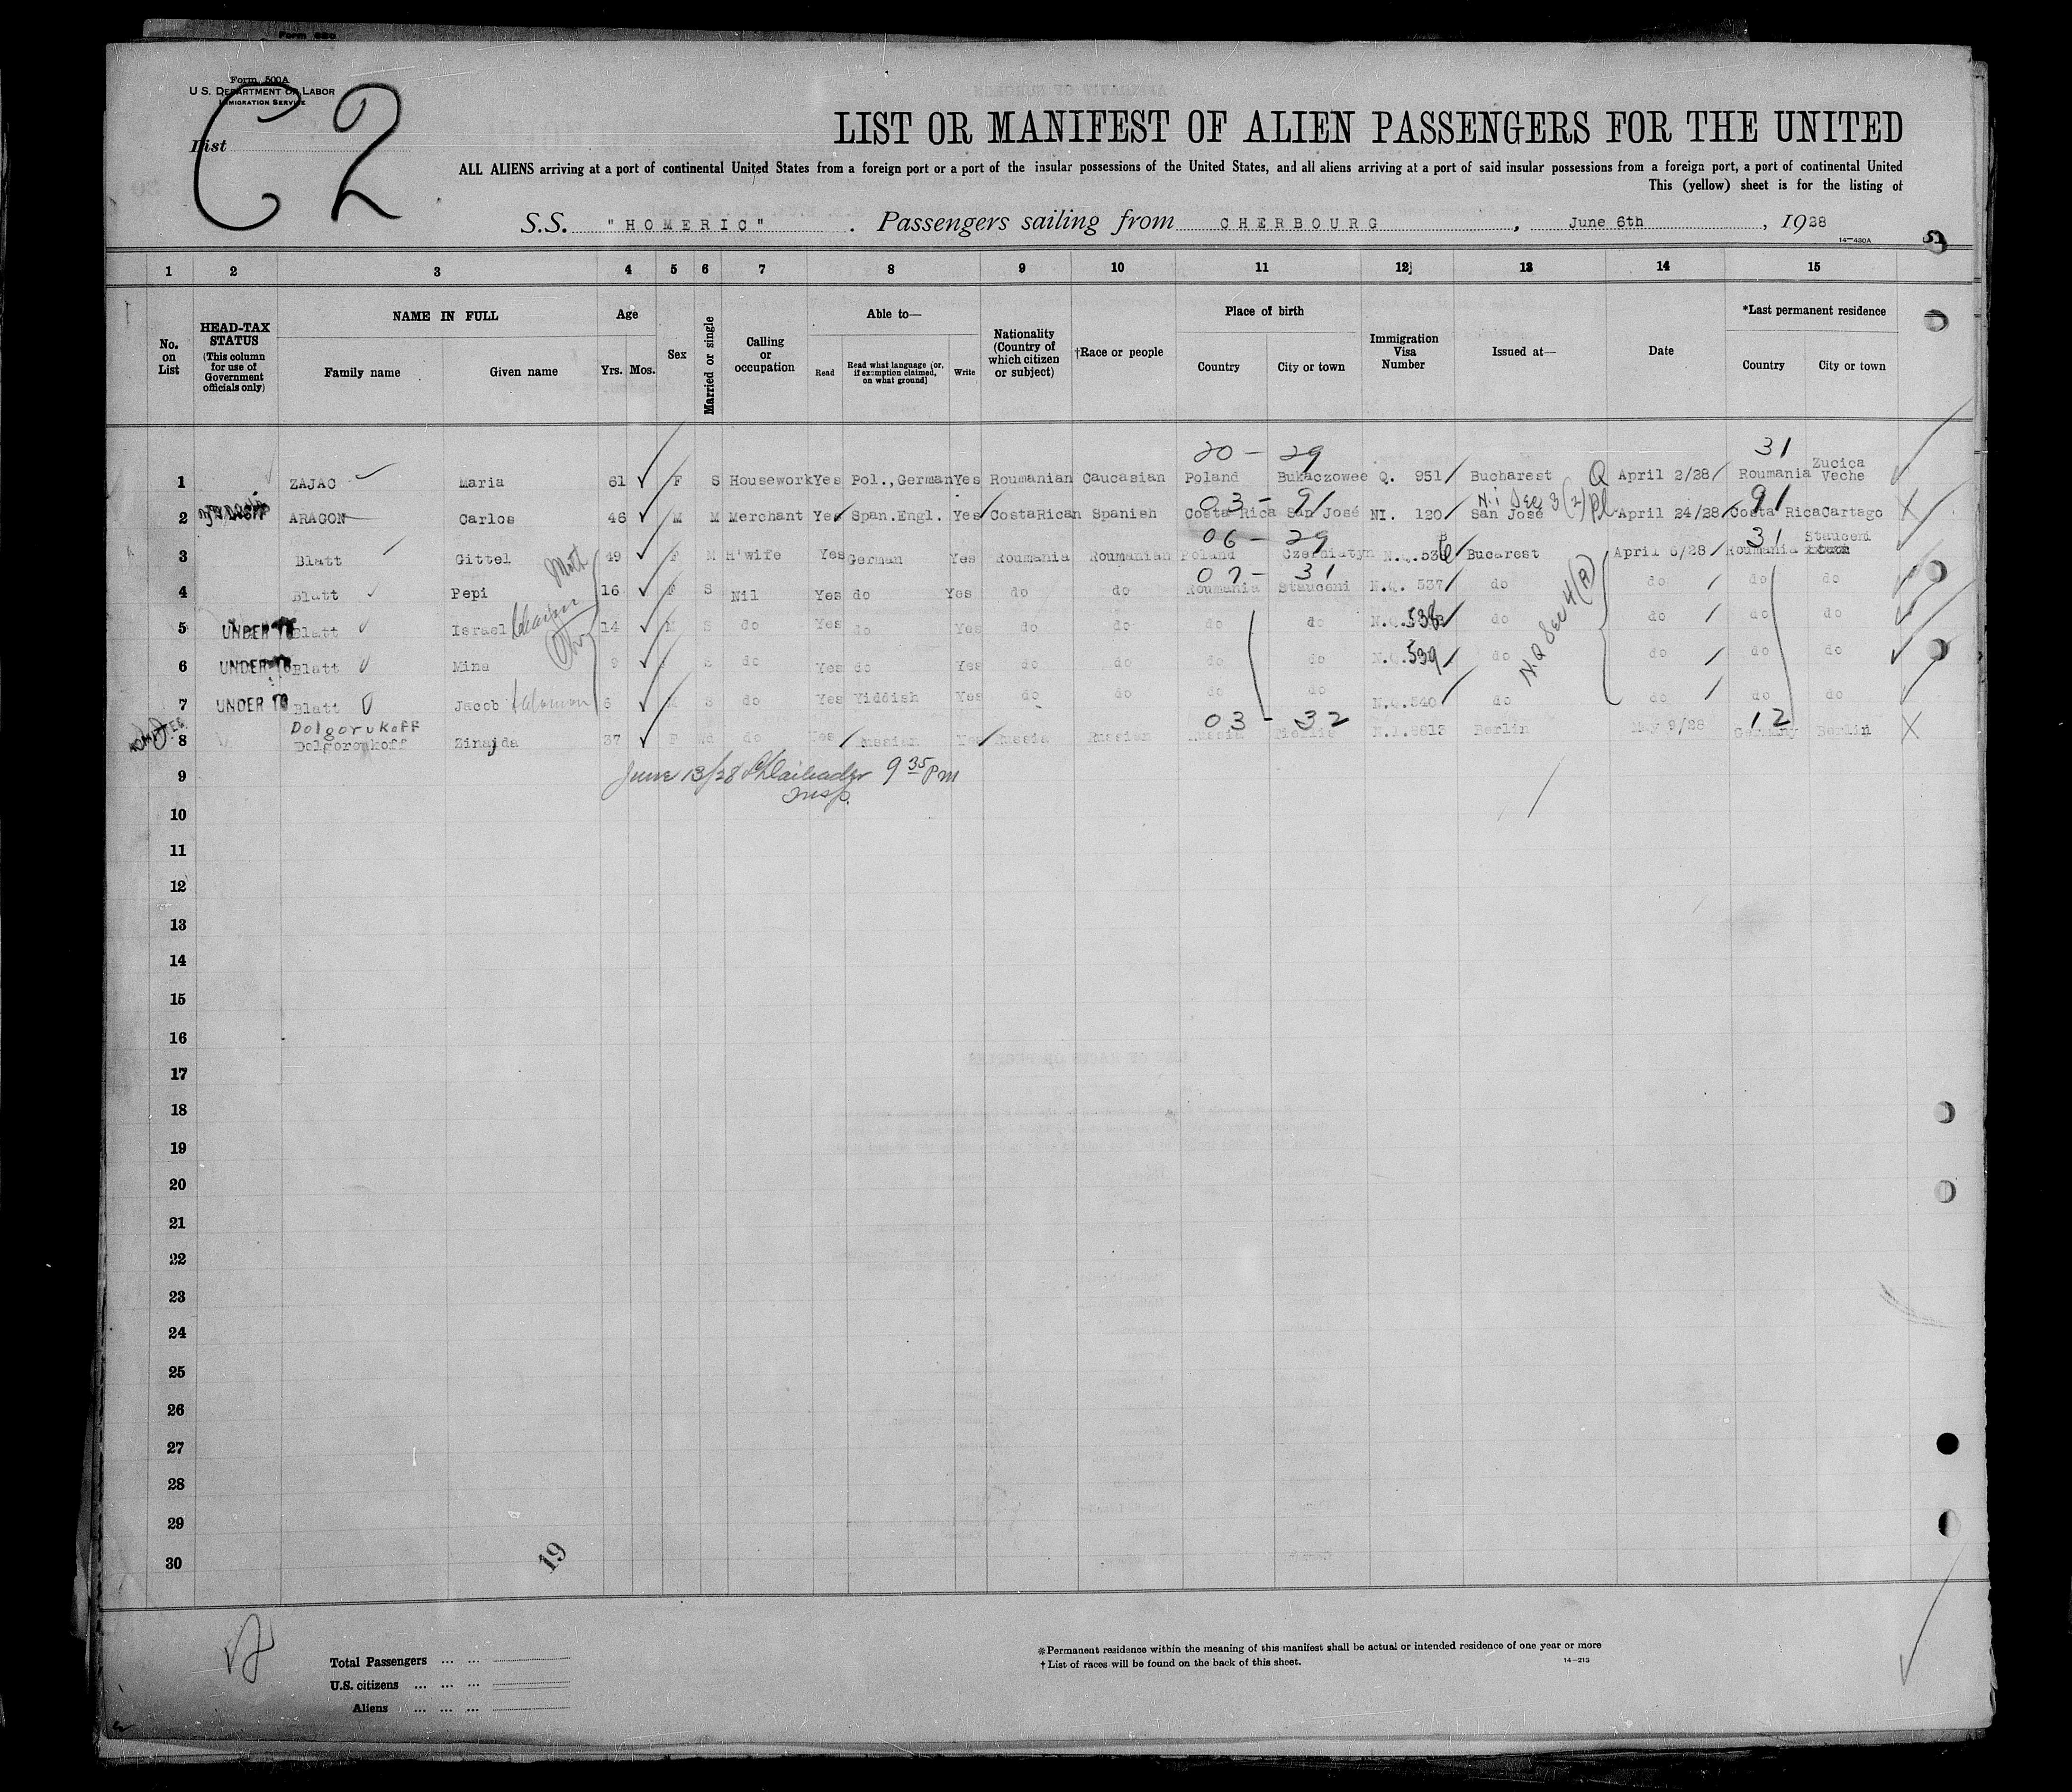 Form 500A
U.S. DEPARTMENT OF LABOR
IMMIGRATION SERVICE
List
C2
LIST OR MANIFEST OF ALIEN PASSENGERS FOR THE UNITED
ALL ALIENS arriving at a port of continental United States from a foreign port or a port of the insular possessions of the United States, and all aliens arriving at a port of said insular possessions from a foreign port, a port of continental United
This (yellow) sheet is for the listing of
S.S. "HOMERIC" . Passengers sailing from CHERBOURG , June 6th , 1928
14-430A
1 2 3 4 5 6 7 8 9 10 11 12 13 14 15
No. on List
HEAD-TAX STATUS (This column for use of Government officials only)
NAME IN FULL
Family name Given name
Age
Yrs. Mos.
Sex
Married or single
Calling or occupation
Able to—
Read Read what language (or, if exemption claimed, on what ground) Write
Nationality (Country of which citizen or subject)
†Race or people
Place of birth
Country City or town
Immigration Visa Number
Issued at—
Date
*Last permanent residence
Country City or town
20 - 29 31
1 ZAJAC Maria 61 F S Housework Yes Pol.,German Yes Roumanian Caucasian Poland Bukaczowee Q. 951 Bucharest Q April 2/28 Roumania Zucica Veche
03 - 91 N.I Sec 3(2) 91
2 ARAGON Carlos 46 M M Merchant Yes Span.Engl. Yes CostaRican Spanish Costa Rica San José NI. 120 San José April 24/28 Costa Rica Cartago
06 - 29 31
3 Blatt Gittel 49 F M H'wife Yes German Yes Roumania Roumanian Poland Czerniatyn N.Q.536 Bucarest April 6/28 Roumania Stauceni
07 - 31
4 Blatt Pepi 16 F S Nil Yes do Yes do do Roumania Stauceni N.Q. 537 do do do do
5 UNDER 16 Blatt Israel 14 M S do Yes do Yes do do do do N.Q.538 do do do do
6 UNDER 16 Blatt Mina 9 S do Yes do Yes do do do do N.Q.539 do do do do
7 UNDER 16 Blatt Jacob Salomon 6 M S do Yes Yiddish Yes do do do do N.Q.540 do do do do
N.Q Sec 4(a)
Dolgorukoff 03 - 32 12
8 Dolgoroukoff Zinajda 37 F Wd do Yes Russian Yes Russia Russian Russia N.I.8613 Berlin May 9/28 Germany Berlin
June 13/28 9 35 PM
Insp.
9
10
11
12
13
14
15
16
17
18
19
20
21
22
23
24
25
26
27
28
29
30
19
Total Passengers ... ...
U.S. citizens ... ... ...
Aliens ... ... ...
*Permanent residence within the meaning of this manifest shall be actual or intended residence of one year or more
†List of races will be found on the back of this sheet.
14-213